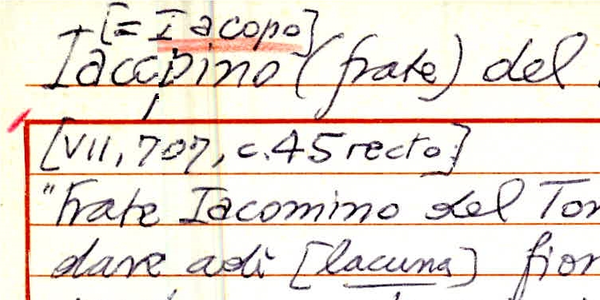 [= Iacopo]
Iacopino (frate) del
[VII, 707, c. 45 recto]
"Frate Iacomino del Tor
dare adì [lacuna] fior